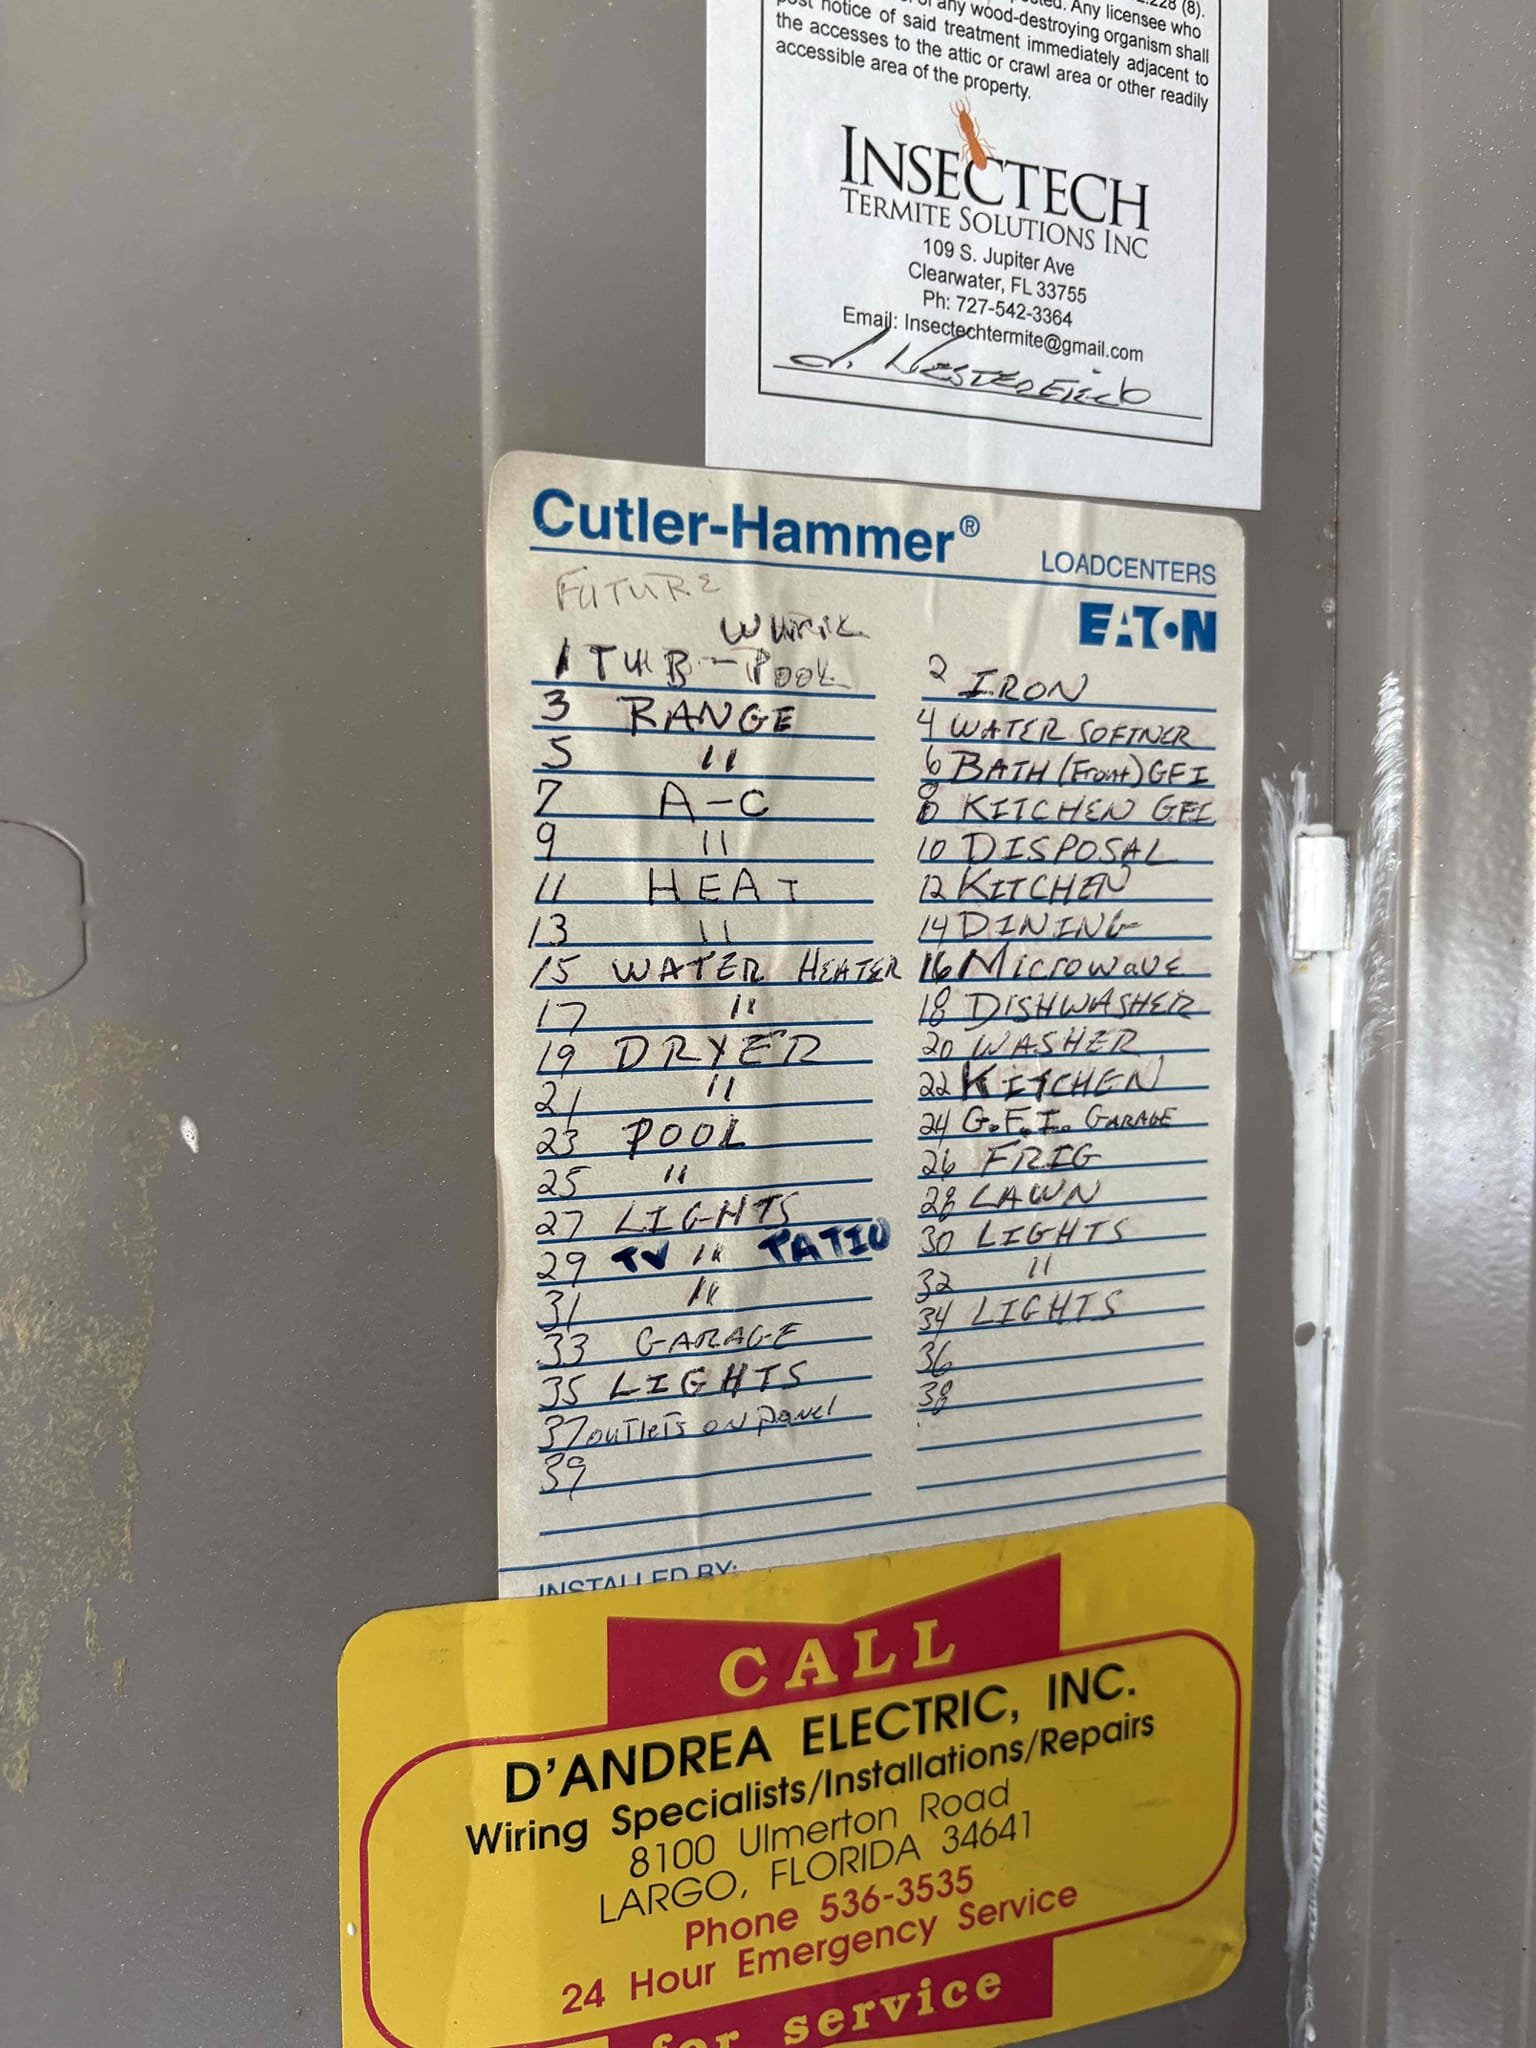 2.228 (8).
posted. Any licensee who
of any wood-destroying organism shall
post notice of said treatment immediately adjacent to
the accesses to the attic or crawl area or other readily
accessible area of the property.
INSECTECH
TERMITE SOLUTIONS INC
109 S. Jupiter Ave
Clearwater, FL 33755
Ph: 727-542-3364
Email: Insectechtermite@gmail.com
Cutler-Hammer®
LOADCENTERS
EATON
FUTURE
1 TUB - POOL
3 RANGE
5 "
7 A-C
9 "
11 HEAT
13 "
15 WATER HEATER
17 "
19 DRYER
21 "
23 POOL
25 "
27 LIGHTS
29 TV " PATIO
31 "
33 GARAGE
35 LIGHTS
37 OUTLETS ON PANEL
39
2 IRON
4 WATER SOFTNER
6 BATH (Front) GFI
8 KITCHEN GFI
10 DISPOSAL
12 KITCHEN
14 DINING
16 MICROWAVE
18 DISHWASHER
20 WASHER
22 KITCHEN
24 G.F.I. GARAGE
26 FRIG
28 LAWN
30 LIGHTS
32 "
34 LIGHTS
36
38
INSTALLED BY:
CALL
D'ANDREA ELECTRIC, INC.
Wiring Specialists/Installations/Repairs
8100 Ulmerton Road
LARGO, FLORIDA 34641
Phone 536-3535
24 Hour Emergency Service
for service